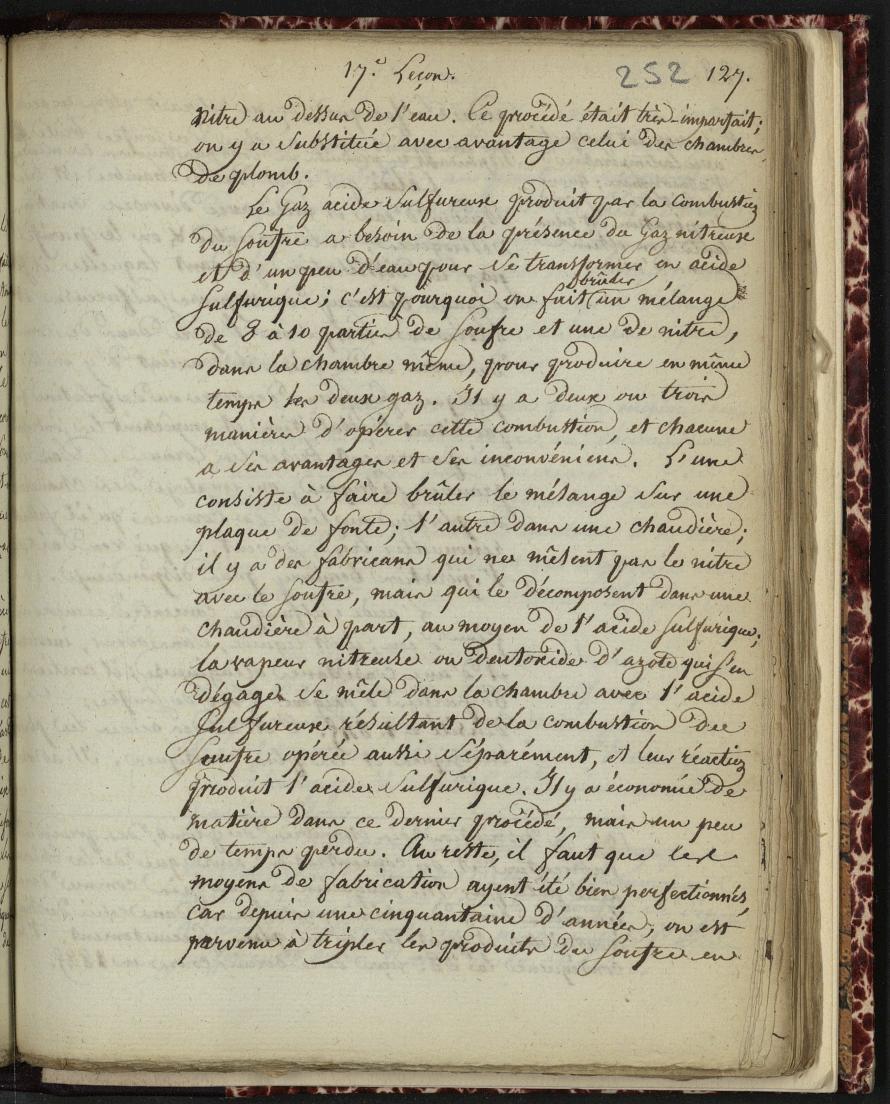 17.e Leçon.
252 127.
nitre au dessus de l'eau. Ce procédé était très-imparfait;
on y a substitué avec avantage celui des chambres
de plomb.
Le Gaz acide sulfureux produit par la combustion
du soufre a besoin de la présence du Gaz nitreux
et d'un peu d'eau pour se transformer en acide
brûler
sulfurique; c'est pourquoi on fait un mélange
de 8 à 10 parties de soufre et une de nitre,
dans la chambre même, pour produire en même
temps les deux gaz. Il y a deux ou trois
manières d'opérer cette combustion, et chacune
a ses avantages et ses inconvéniens. L'une
consiste à faire brûler le mélange sur une
plaque de fonte; l'autre dans une chaudière;
il y a des fabricans qui ne mêlent pas le nitre
avec le soufre, mais qui le décomposent dans une
chaudière à part, au moyen de l'acide sulfurique;
la vapeur nitreuse ou deutoxide d'azote qui s'en
dégage se mêle dans la chambre avec l'acide
sulfureux résultant de la combustion du
soufre opérée aussi séparément, et leur réaction
produit l'acide sulfurique. Il y a économie de
matière dans ce dernier procédé, mais un peu
de temps perdu. Au reste, il faut que les
moyens de fabrication ayent été bien perfectionnés,
car depuis une cinquantaine d'années, on est
parvenu à tripler les produits du soufre en